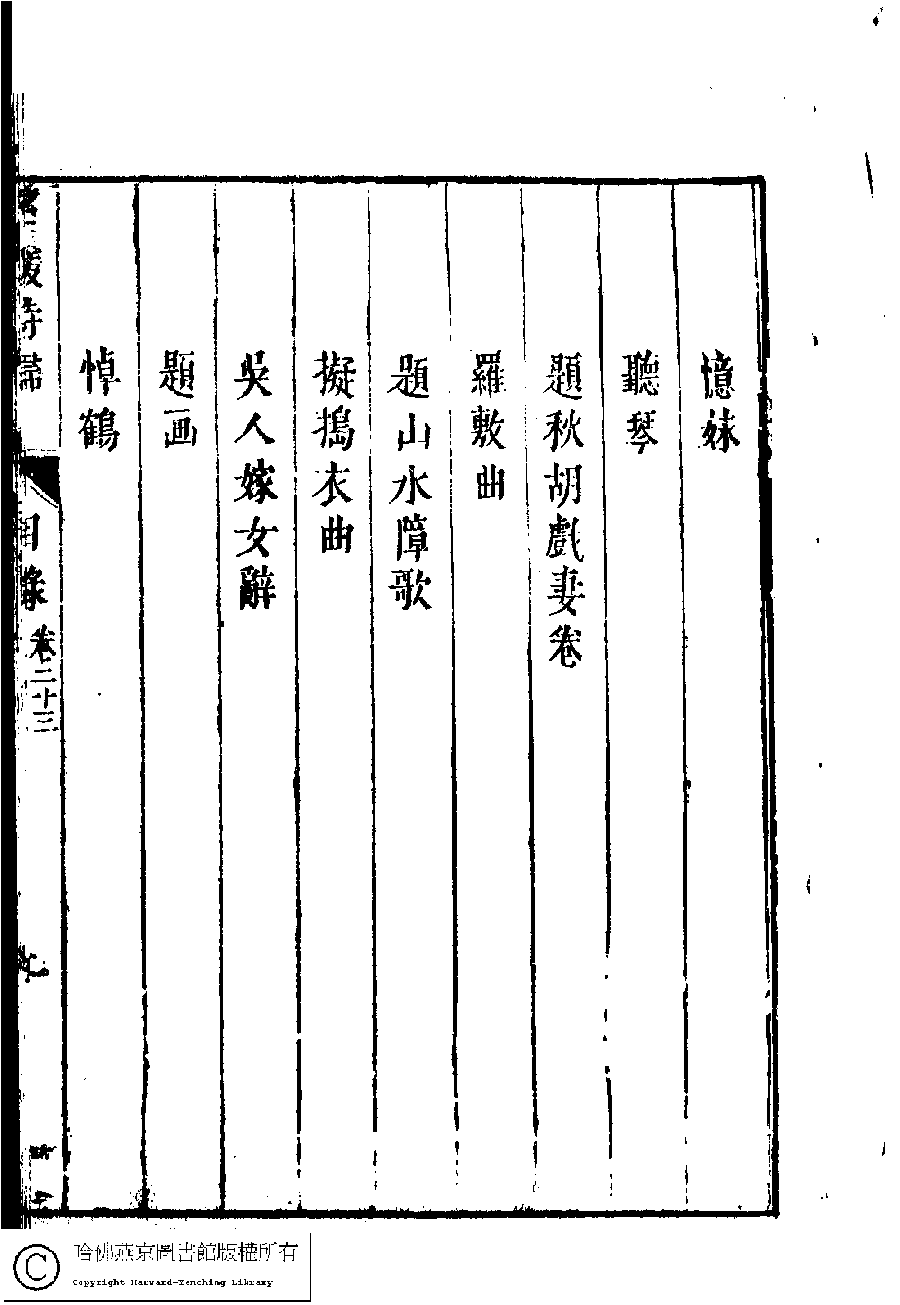 憶妹
聽琴
題秋胡戲妻卷
羅敷曲
題山水障歌
擬搗衣曲
吳人嫁女辭
題画
悼鶴
目錄 卷二十三
哈佛燕京圖書館版權所有
Copyright Harvard-Yenching Library